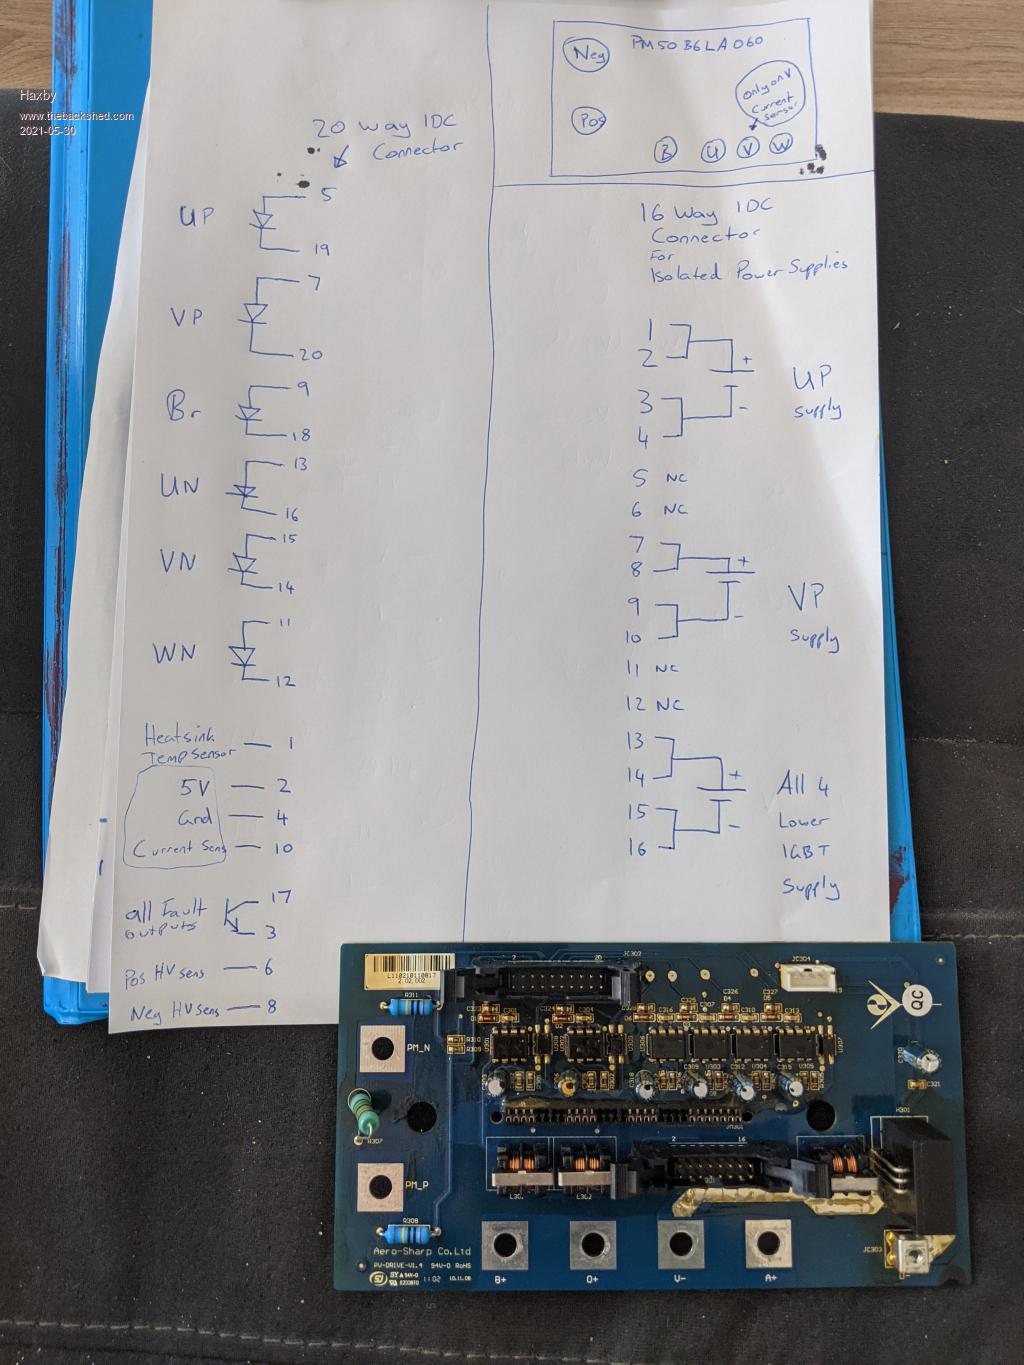 Haxby
www.thebackshed.com
2021-05-30
20 Way IDC
Connector
UP
5
19
VP
7
20
Br
9
18
UN
13
16
VN
15
14
WN
11
12
Heatsink
Temp Sensor
1
5V
2
Gnd
4
Current Sens
10
all Fault
outputs
17
3
Pos HV sens
6
Neg HV sens
8
PM50B6LA060
Neg
Pos
only on V
Current
sensor
B
U
V
W
16 Way IDC
Connector
For
Isolated Power Supplies
1
2
+
3
4
-
UP
supply
5 NC
6 NC
7
8
+
9
10
-
VP
Supply
11 NC
12 NC
13
14
+
15
16
-
All 4
Lower
IGBT
Supply
L110210110017
2.02.002
2
20
JC302
JC304
R311
QC
PM_N
R310
R309
R307
PM_P
R308
2
16
L302
H301
C321
JC303
Aero-Sharp Co.Ltd
PV-DRIVE-V1.4 94V-0 RoHS
11:02 10.11.08
B+
O+
V-
A+